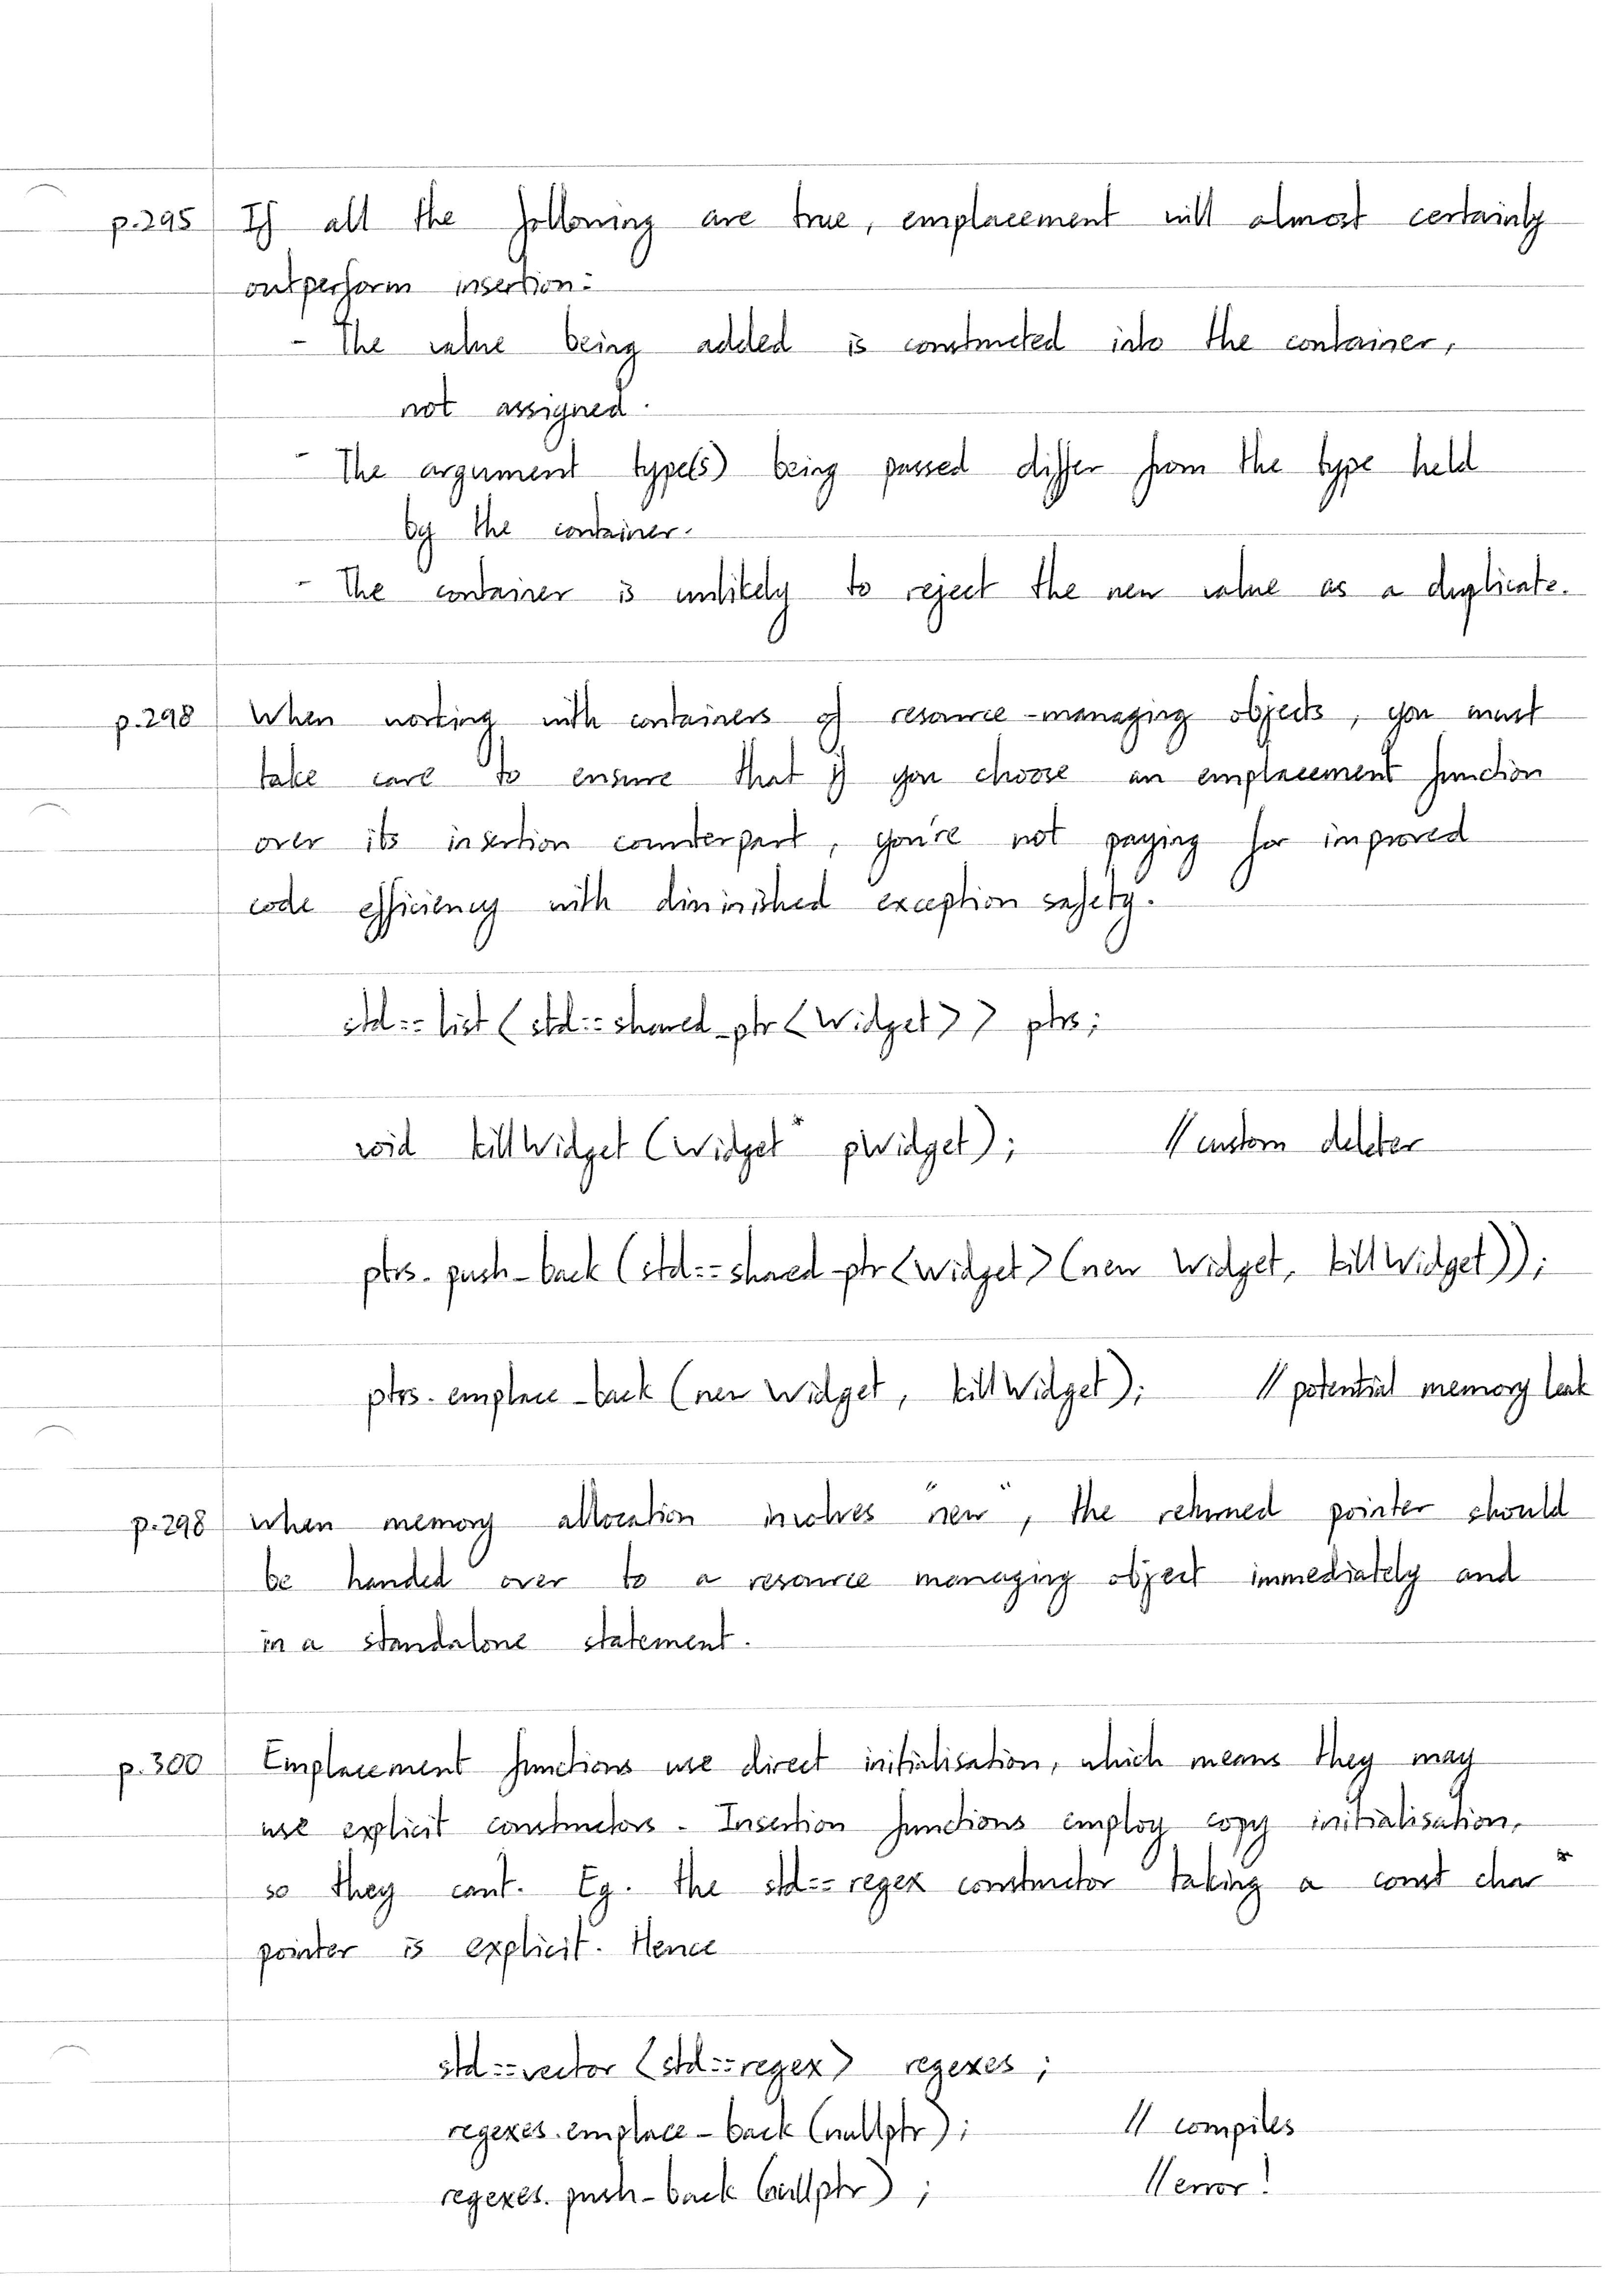 p.295 If all the following are true, emplacement will almost certainly
outperform insertion:
- The value being added is constructed into the container,
not assigned.
- The argument type(s) being passed differ from the type held
by the container.
- The container is unlikely to reject the new value as a duplicate.
p.298 When working with containers of resource-managing objects, you must
take care to ensure that if you choose an emplacement function
over its insertion counterpart, you're not paying for improved
code efficiency with diminished exception safety.
std::list<std::shared_ptr<Widget>> ptrs;
void killWidget(Widget* pWidget); //custom deleter
ptrs.push_back(std::shared_ptr<Widget>(new Widget, killWidget));
ptrs.emplace_back(new Widget, killWidget); // potential memory leak
p.298 When memory allocation involves "new", the returned pointer should
be handed over to a resource managing object immediately and
in a standalone statement.
p.300 Emplacement functions use direct initialisation, which means they may
use explicit constructors. Insertion functions employ copy initialisation,
so they can't. Eg. the std::regex constructor taking a const char*
pointer is explicit. Hence
std::vector<std::regex> regexes;
regexes.emplace_back(nullptr); // compiles
regexes.push_back(nullptr); //error!